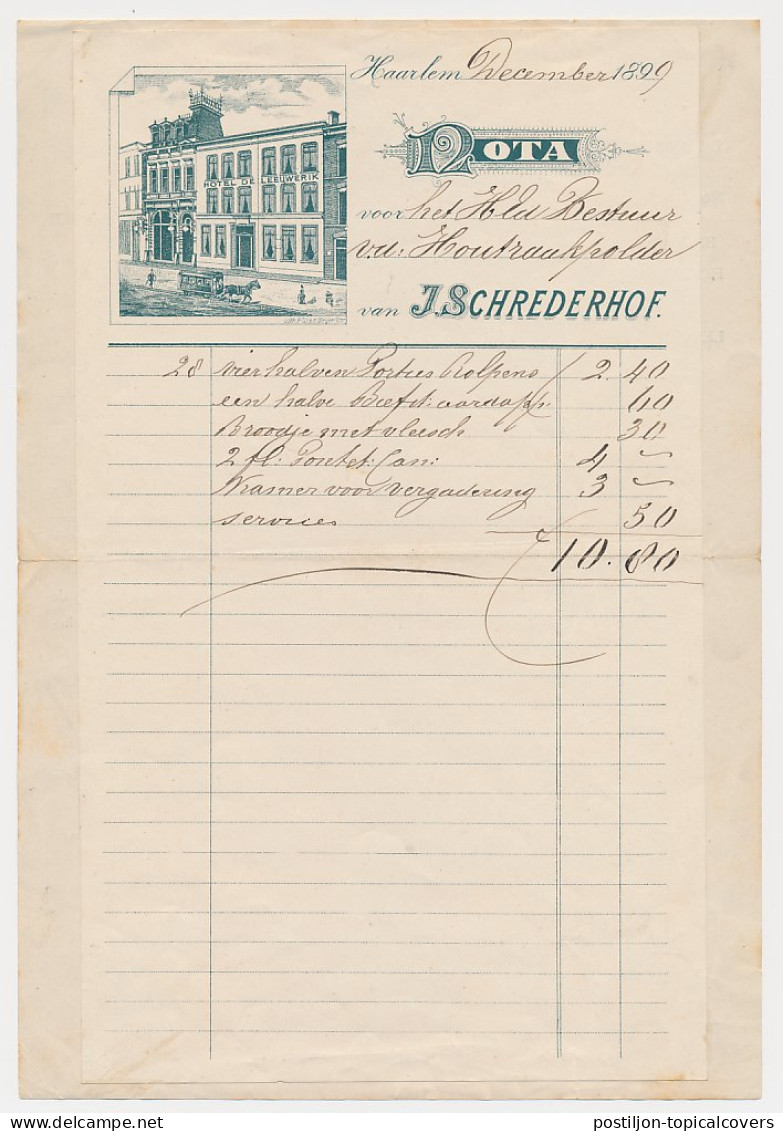 Haarlem December 1899
HOTEL DE LEEUWERIK
NOTA
voor het Hld Bestuur
v.d: Houtraakpolder
van J. SCHREDERHOF.
28 vier halven Porties Rolpens ƒ 2. 40
een halve Biefst: aardapp: 60
Broodje met vleesch 30
2 fl: Pontet: Can: 4 ~
Kamer voor vergadering 3 ~
services 50
ƒ 10. 80
delcampe.net
postiljon-topicalcovers